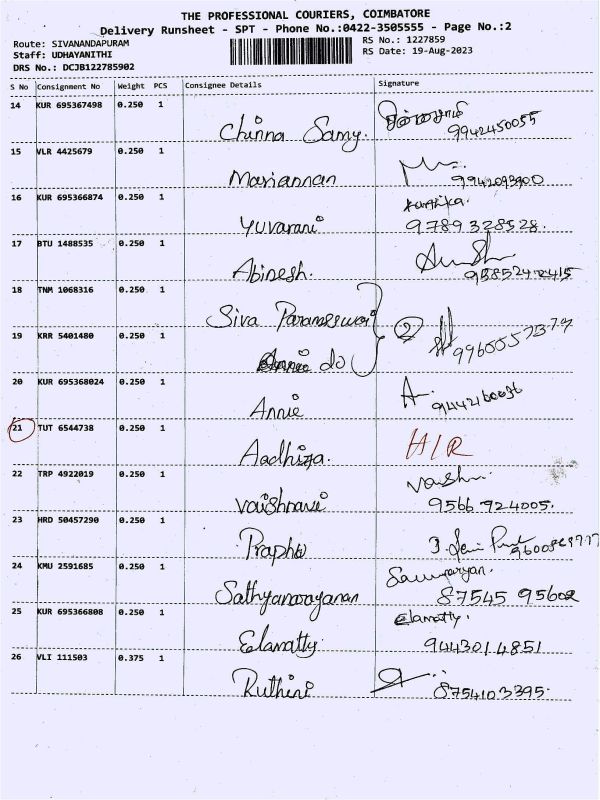 THE PROFESSIONAL COURIERS, COIMBATORE
Delivery Runsheet - SPT - Phone No.:0422-3505555 - Page No.:2
Route: SIVANANDAPURAM RS No.: 1227859
Staff: UDHAYANITHI RS Date: 19-Aug-2023
DRS No.: DCJB122785902
S No Consignment No Weight PCS Consignee Details Signature
14 KUR 695367498 0.250 1
Chinna Samy. 9942450055
15 VLR 4425679 0.250 1
Mariannan
16 KUR 695366874 0.250 1 Karthika.
Yuvarani 9789328528.
17 BTU 1488535 0.250 1
Abinesh.
18 TNM 1068316 0.250 1
Siva
19 KRR 5401480 0.250 1 2
do
20 KUR 695368024 0.250 1 A.
Annie
21 TUT 6544738 0.250 1 H/R
Aadhiza.
22 TRP 4922019 0.250 1
Vaishnavi 9566 924005.
23 HRD 50457290 0.250 1
Prapha
24 KMU 2591685 0.250 1
Sathyanarayanan 87545 95602
25 KUR 695366808 0.250 1 Elavatty.
Elavatty. 9443014851
26 VLI 111503 0.375 1
Ruthini 8754103395.